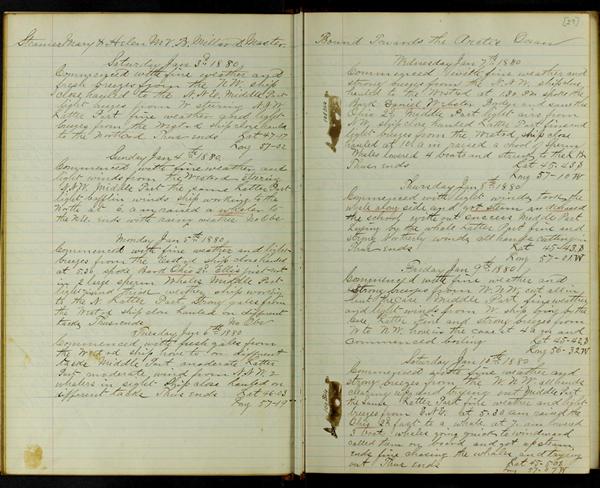 Steamer Mary & Helen M.V.B. Millard Master
Saturday Jan 3rd 1880
Commenced with fine weather and
fresh breezes from the N.W. ship
close hauled to the N.E. Middle Part
light airs from W N.W.
Latter Part fine weather and light
breezes from the ship close hauled
to the Northward Thus ends Lat 47-17
Long 57-02
Sunday Jan 4th 1880
Commenced with fine weather and
light winds from the Westard
N.W. Middle Part the same Latter Part
light baffling winds ship working to the
North at 6 a.m. raised a whaler to
the N.E. ends with No Obs
Monday Jan 5th 1880
Commenced with fine weather and light
breezes from the ship close hauled
at 5.30 spoke Bark Ohio 2d Ellis just cut
in 2 large sperm Whales Middle Part
light winds fine weather ship
to the N. Latter Part Strong gales from
the Westard ship close hauled on different
tacks Thus ends No Obs
Tuesday Jan 6th 1880
Commenced with fresh gales from
the Westard ship hove to on different
tacks Middle Part moderate Latter
Part moderate wind from N.W. 2
whalers in sight ship close hauled on
different tacks Thus ends Lat 46-03
Long 57-19
[29]
Bound Towards the Arctic Ocean
Wednesday Jan 7th 1880
Commenced with fine weather and
strong breezes from the N.W. ship close
hauled to the Westard at 1.30 spoke the
Bark Daniel Webster and saw the
Ohio 2d Middle Part light airs from
N.W. ship close hauled Latter Part fine and
light breezes from the Westard ship close
hauled at 10 a.m. raised a shool of sperm
Whales lowered 4 boats and struck to the L.B.
Thus ends Lat 45-45 S
Long 57-10 W
Thursday Jan 8th 1880
Commenced with light winds took the
whale along side and got
the school without success Middle Part
Laying by the whale Latter Part fine and
strong Northerly winds all hands cutting in
Thus ends Lat 45-42 S
Long 57-01 W
Friday Jan 9th 1880
Commenced with fine weather and
strong breezes from W.N.W. cut all in
Middle Part fine weather
and light winds from W. ship laying by the
Latter Part and strong breezes from
W to N.W. took in the case at 4 a.m. and
commenced boiling Lat 45-42 S
Long 56-32 W
Saturday Jan 10th 1880
Commenced with fine weather and
strong breezes from the W.N.W. all hands
clearing up and trying out Middle Part
the same Latter Part fine weather and light
breezes from at 5.30 a.m. raised the
Ohio 2d fast to a whale at 7 a.m. lowered
3 boats whales going quick to windward
called them on board and got up steam
ends fine chasing the whales and trying
out Thus ends Lat 45-50 S